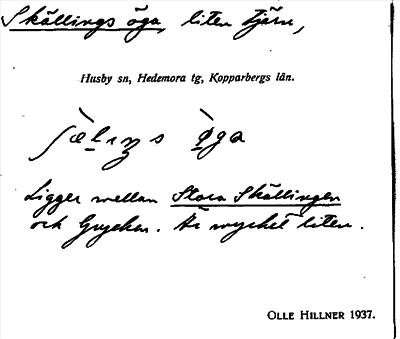 Skällings öga, liten tjärn,
Husby sn, Hedemora tg, Kopparbergs län.
ʃæliŋs øga
Ligger mellan Stora Skällingen
och Grycken. Är mycket liten.
OLLE HILLNER 1937.